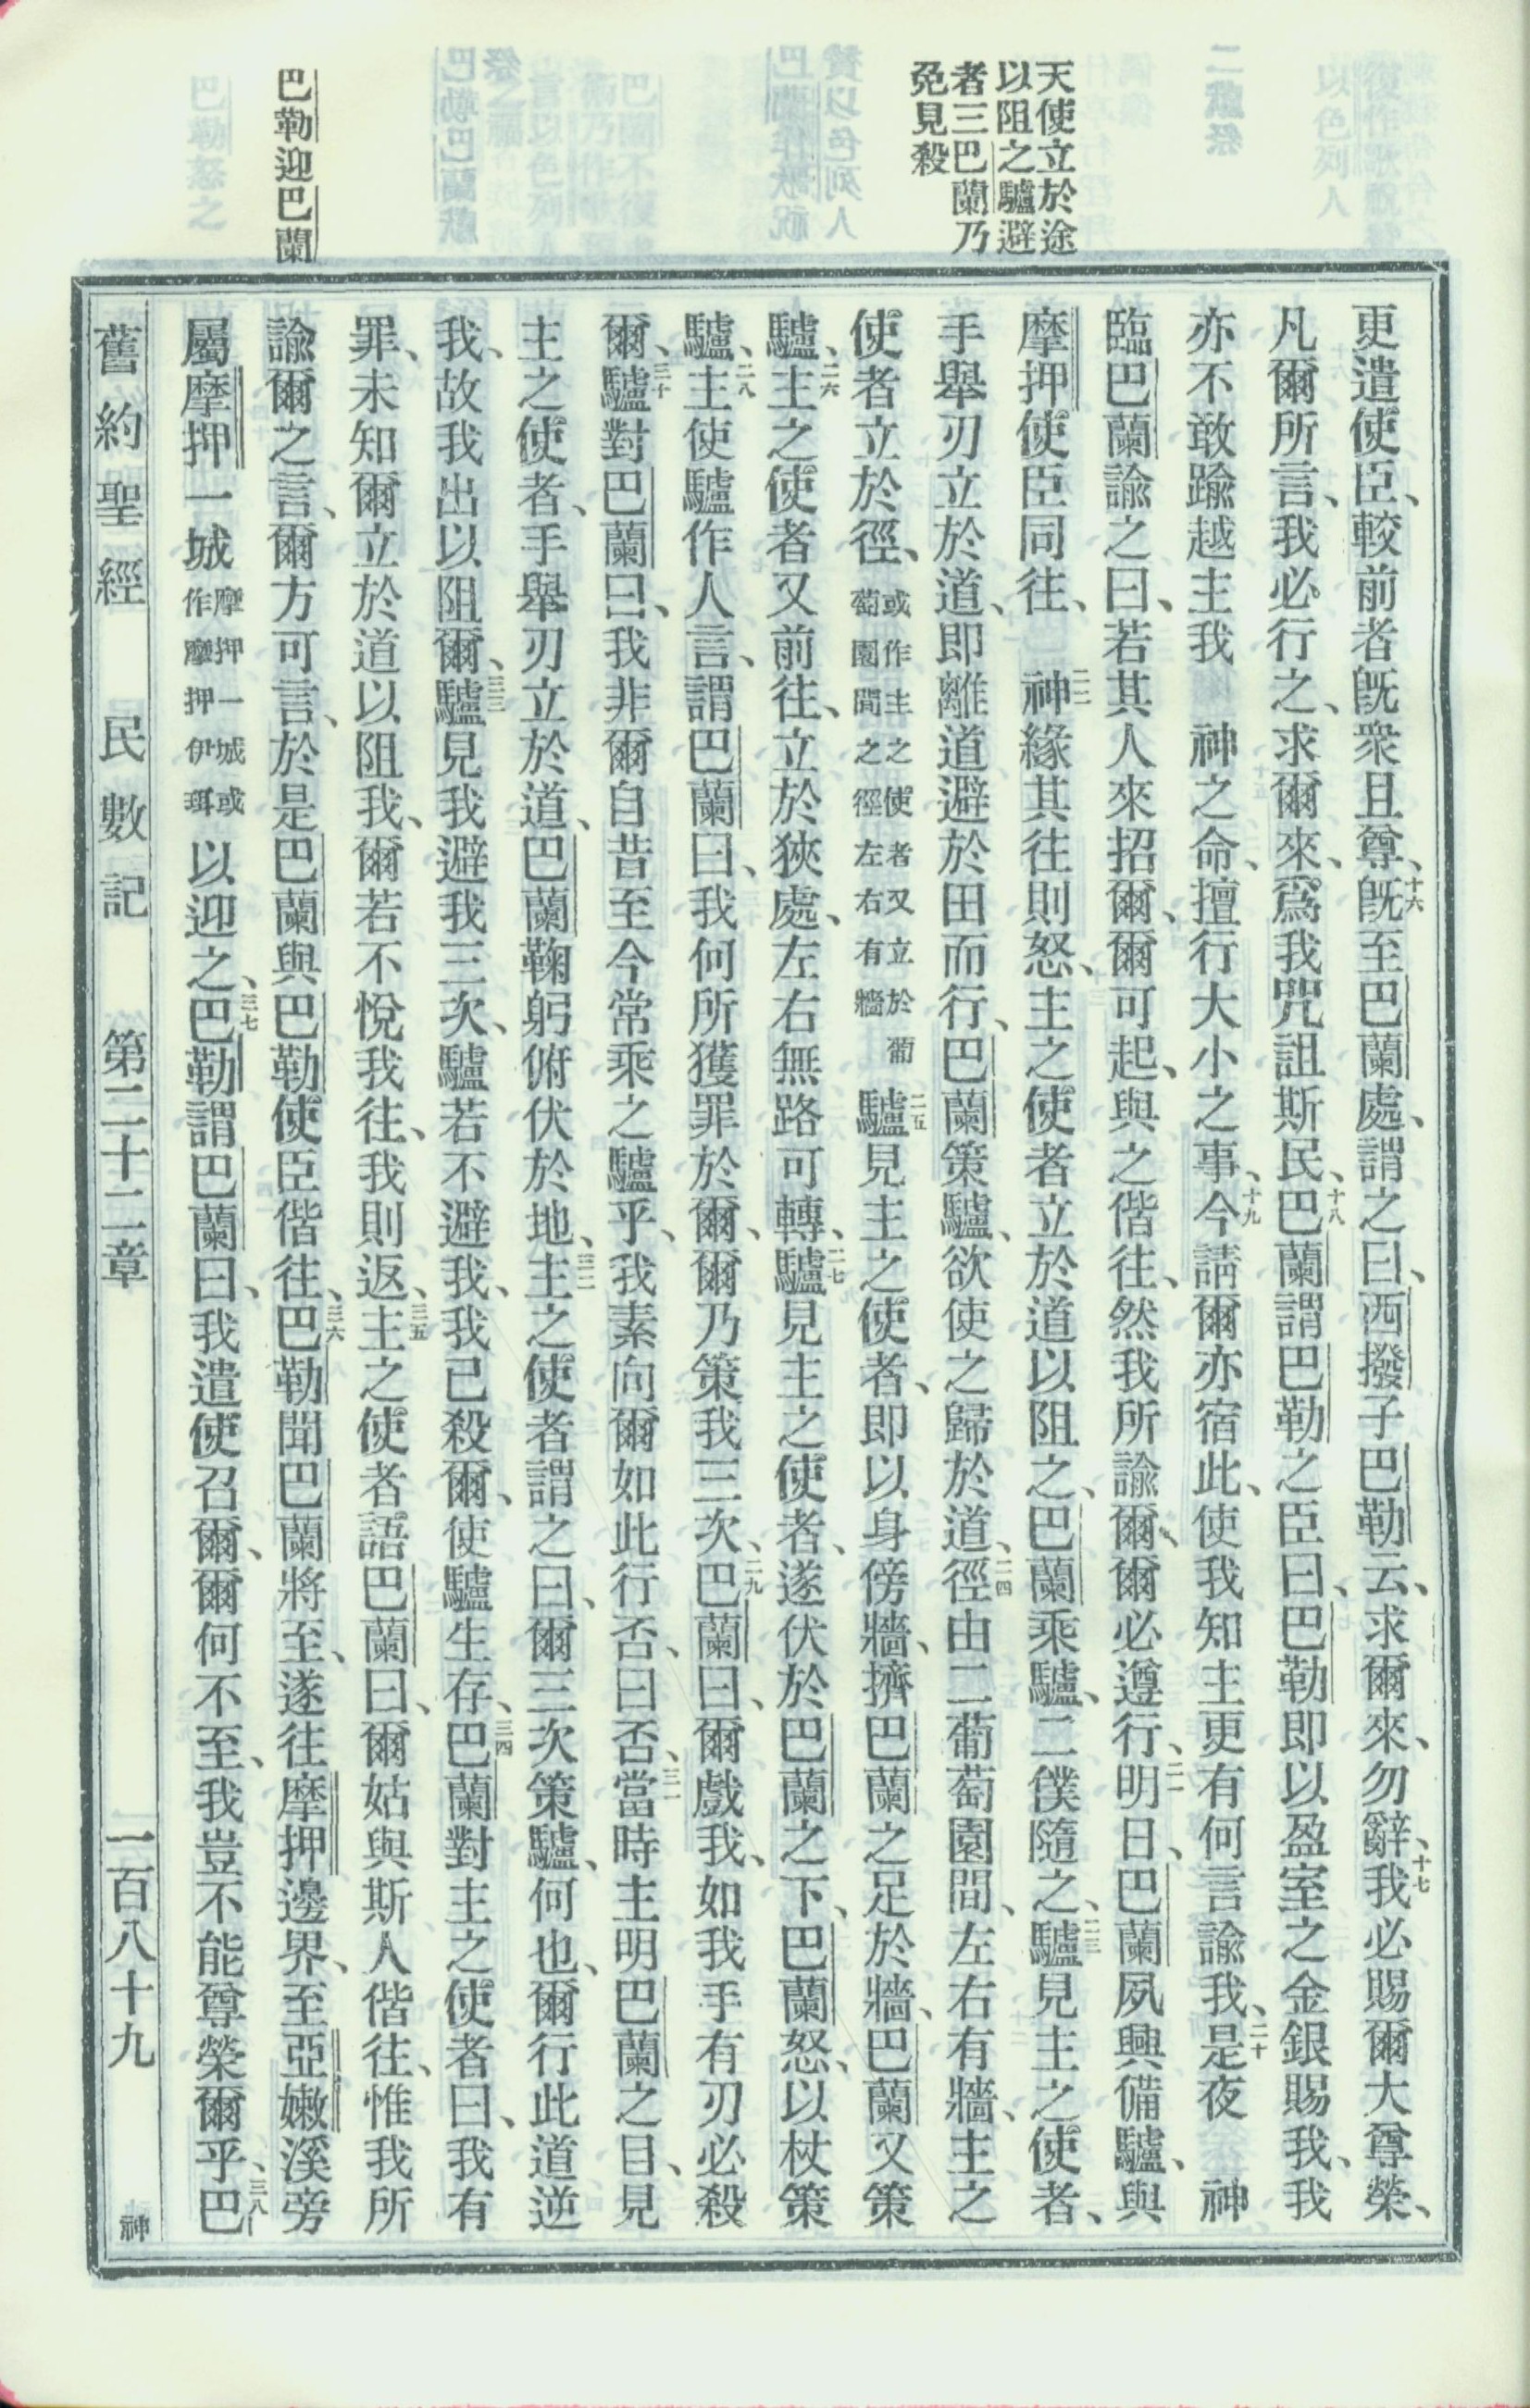 天使立於途
以阻之驢避
者三巴蘭乃
免見殺
巴勒迎巴蘭
更遣使臣、較前者既衆且尊、十六既至巴蘭處、謂之曰、西撥子巴勒云、求爾來、勿辭、十七我必賜爾大尊榮、
凡爾所言、我必行之、求爾來、爲我咒詛斯民、十八巴蘭謂巴勒之臣曰、巴勒即以盈室之金銀賜我、我
亦不敢踰越主我　神之命、擅行大小之事、十九今請爾亦宿此、使我知主更有何言諭我、二十是夜　神
臨巴蘭諭之曰、若其人來招爾、爾可起、與之偕往、然我所諭爾、爾必遵行、二一明日、巴蘭夙興備驢、與
摩押使臣同往、　二二神緣其往則怒、主之使者立於道以阻之、巴蘭乘驢、二僕隨之、二三驢見主之使者、
手舉刃立於道、即離道避於田而行、巴蘭策驢、欲使之歸於道、二四徑由二葡萄園間、左右有牆、主之
使者立於徑、或作主之使者又立於葡萄園間之徑左右有牆二五驢見主之使者、即以身傍牆、擠巴蘭之足於牆、巴蘭又策
驢、二六主之使者又前往、立於狹處、左右無路可轉、二七驢見主之使者、遂伏於巴蘭之下、巴蘭怒、以杖策
驢、二八主使驢作人言、謂巴蘭曰、我何所獲罪於爾、爾乃策我三次、二九巴蘭曰、爾戲我、如我手有刃必殺
爾、三十驢對巴蘭曰、我非爾自昔至今常乘之驢乎、我素向爾如此行否、曰否、三一當時主明巴蘭之目、見
主之使者、手舉刃立於道、巴蘭鞠躬俯伏於地、三二主之使者謂之曰、爾三次策驢、何也、爾行此道逆
我、故我出以阻爾、三三驢見我避我三次、驢若不避我、我已殺爾、使驢生存、三四巴蘭對主之使者曰、我有
罪、未知爾立於道以阻我、爾若不悅我往、我則返、三五主之使者語巴蘭曰、爾姑與斯人偕往、惟我所
諭爾之言、爾方可言、於是巴蘭與巴勒使臣偕往、三六巴勒聞巴蘭將至、遂往摩押邊界、至亞嫩溪旁
屬摩押一城摩押一城或作摩押伊珥以迎之、三七巴勒謂巴蘭曰、我遣使召爾、爾何不至、我豈不能尊榮爾乎、三八巴
舊約聖經　民數記　第二十二章　一百八十九　神